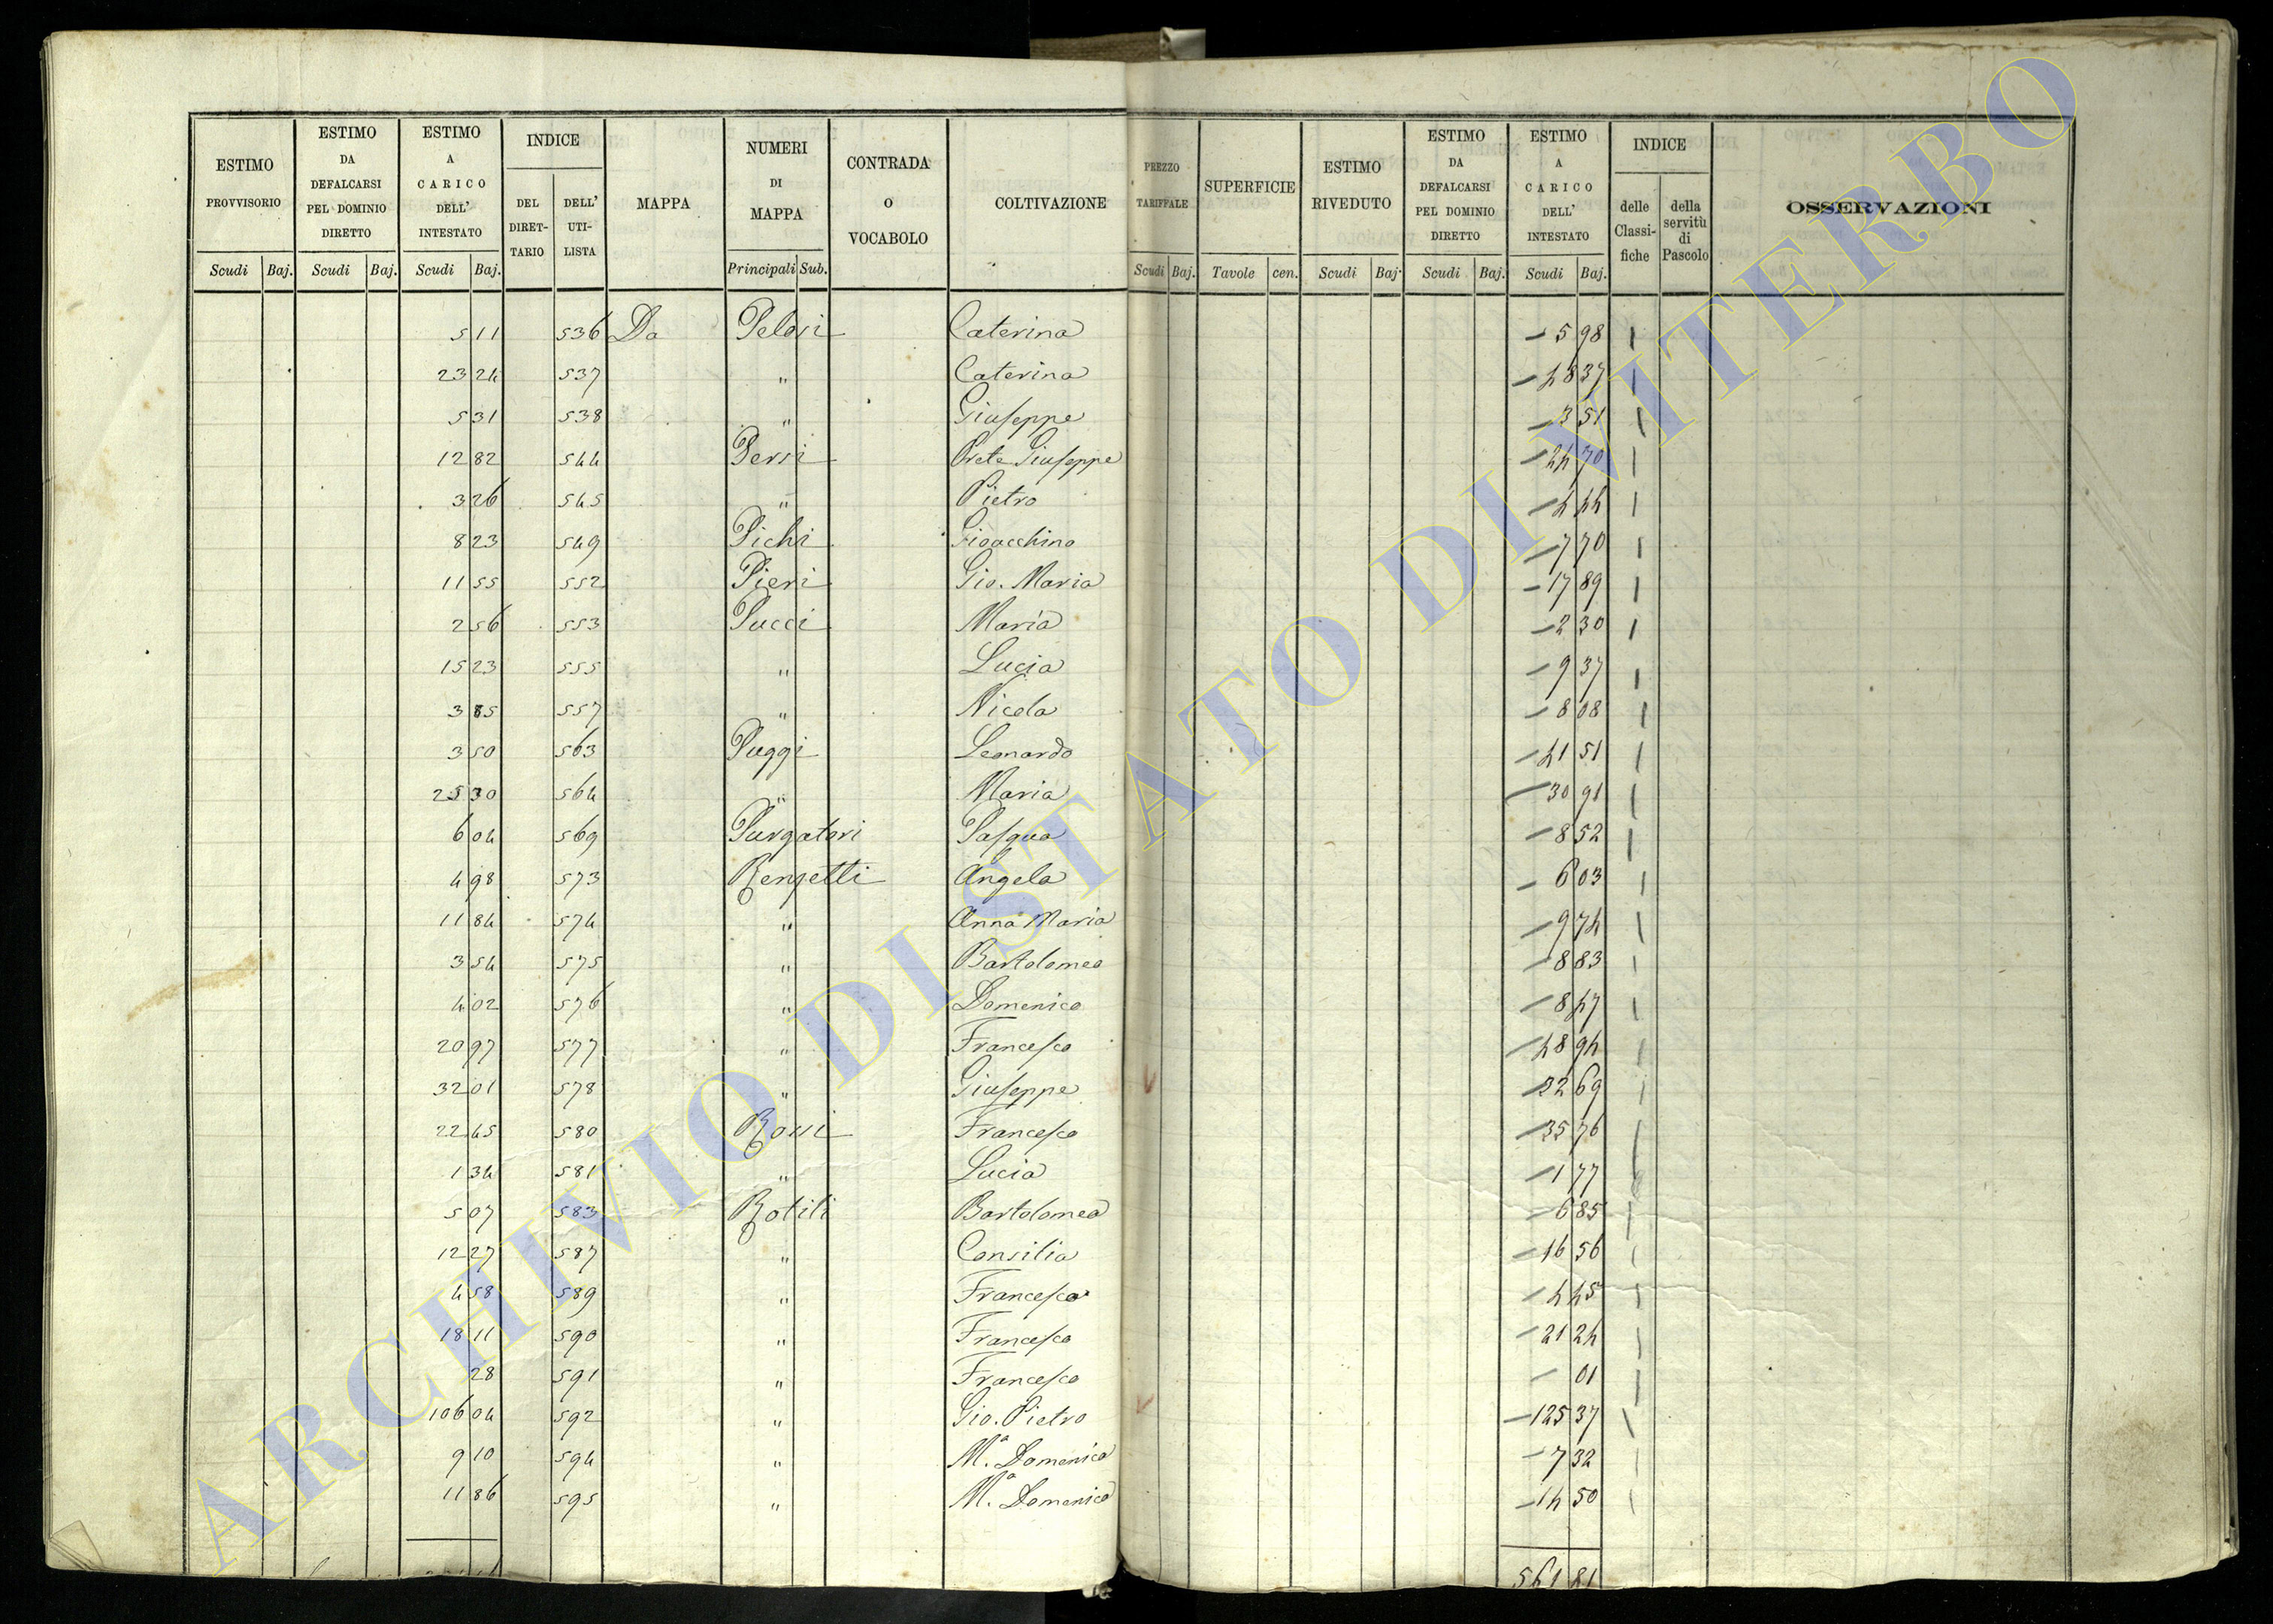 ESTIMO PROVVISORIO Scudi Baj.
ESTIMO DA DEFALCARSI PEL DOMINIO DIRETTO Scudi Baj.
ESTIMO A CARICO DELL' INTESTATO Scudi Baj.
INDICE DEL DIRET- TARIO DELL' UTI- LISTA
MAPPA
NUMERI DI MAPPA Principali Sub.
CONTRADA O VOCABOLO
COLTIVAZIONE
PREZZO TARIFFALE Scudi Baj.
SUPERFICIE Tavole cen.
ESTIMO RIVEDUTO Scudi Baj.
ESTIMO DA DEFALCARSI PEL DOMINIO DIRETTO Scudi Baj.
ESTIMO A CARICO DELL' INTESTATO Scudi Baj.
INDICE delle Classi- fiche della servitù di Pascolo
OSSERVAZIONI
5 11 536 Da Pelosi Caterina 5 98
23 24 537 " Caterina 48 37
5 31 538 " Giuseppe 3 51
12 82 544 Persi Prete Giuseppe 24 70
3 26 545 " Pietro 4 44
8 23 549 Pichi Gioacchino 7 70
11 55 552 Pieri Gio. Maria 17 89
2 56 553 Pucci Maria 2 30
15 23 555 " Lucia 9 37
3 85 557 " Nicola 8 08
3 50 563 Puggi Leonardo 41 51
25 30 564 " Maria 30 91
6 04 569 Purgatori Pasqua 8 52
4 98 573 Renzetti Angela 6 03
11 84 574 " Anna Maria 9 74
3 54 575 " Bartolomeo 8 83
4 02 576 " Domenico 8 47
20 97 577 " Francesco 48 94
32 01 578 " Giuseppe 32 69
22 45 580 Rossi Francesco 35 76
1 34 581 " Lucia 1 77
5 07 583 Rotili Bartolomeo 6 85
12 27 587 " Consilia 16 56
4 58 589 " Francesco 4 45
18 11 590 " Francesco 21 24
28 591 " Francesco 01
106 04 592 " Gio. Pietro 125 37
9 10 594 " M.a Domenica 7 32
11 86 595 " M.a Domenica 14 50
561 81
ARCHIVIO DI STATO DI VITERBO